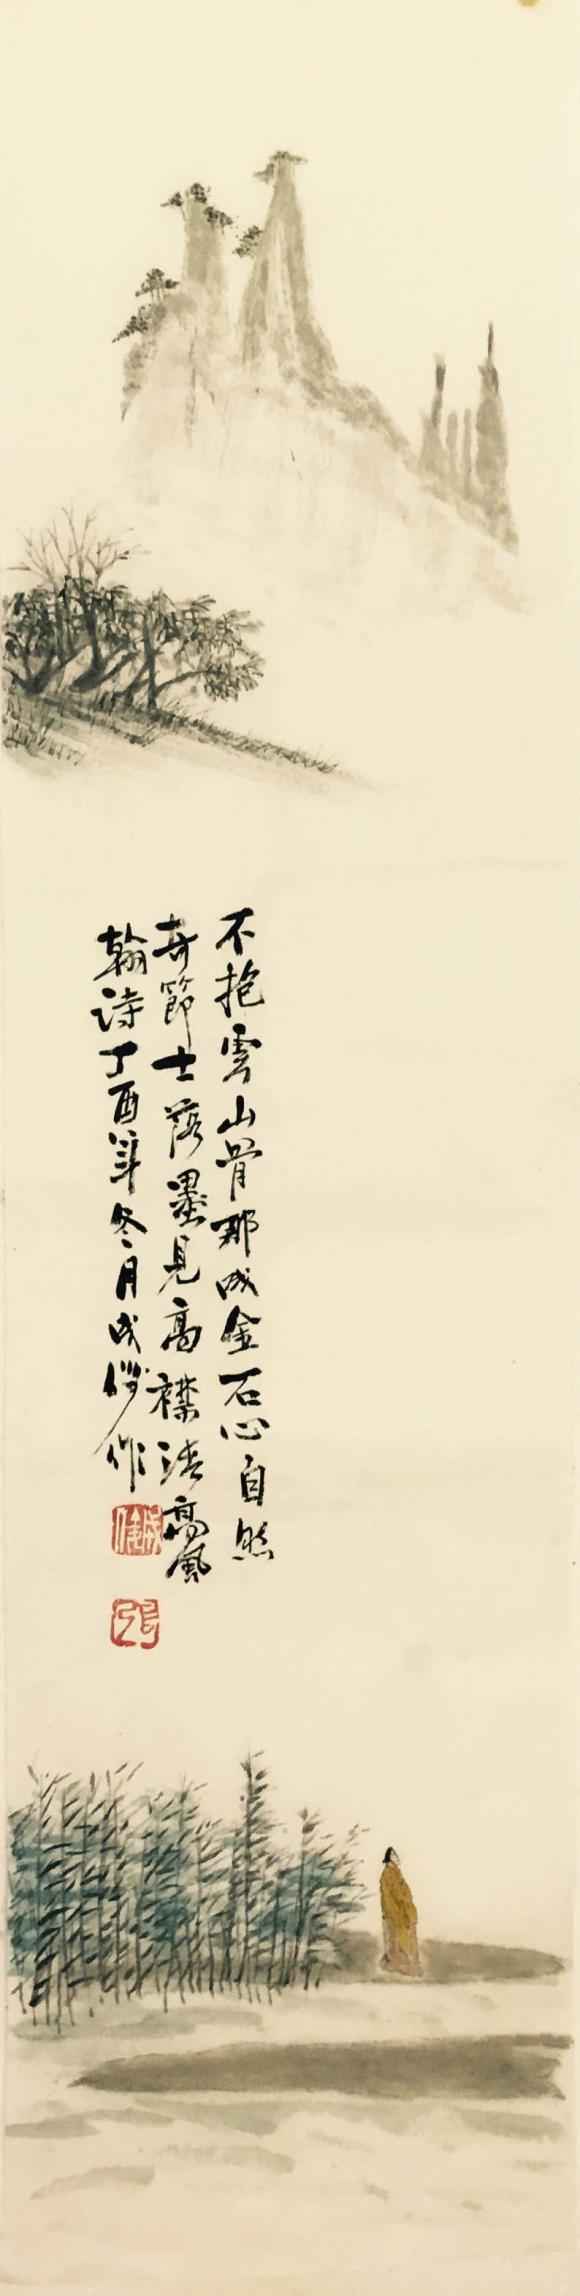 不抱雲山骨那成金石心自然
奇節士落墨見高襟清高風
翰詩丁酉年冬月成作